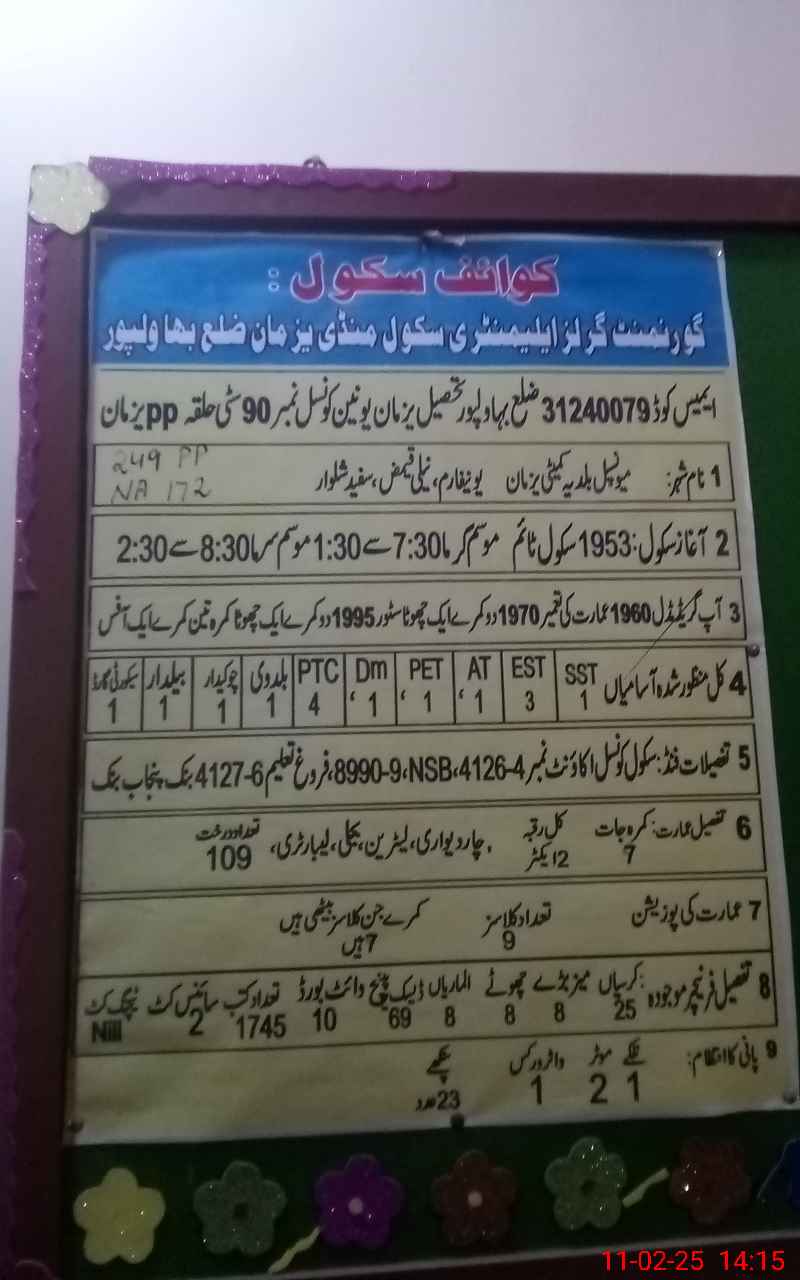 کوائف سکول :
گورنمنٹ گرلز ایلیمنٹری سکول منڈی یزمان ضلع بہاولپور
ایمیس کوڈ 31240079 ضلع بہاولپور تحصیل یزمان یونین کونسل نمبر 90 سٹی حلقہ pp یزمان
1 نام شہر: میونسپل بلدیہ کمیٹی یزمان یونیفارم، نیلی قمیض، سفید شلوار
249 PP
NA 172
2 آغاز سکول: 1953 سکول ٹائم موسم گرما 7:30 سے 1:30 موسم سرما 8:30 سے 2:30
3 آپ گریڈ مڈل 1960 عمارت کی تعمیر 1970 دو کمرے ایک چھوٹا سٹور 1995 دو کمرے ایک چھوٹا کمرہ تین کمرے ایک آفس
4 کل منظور شدہ آسامیاں SST EST AT PET Dm PTC بلدوی چوکیدار بیلدار سیکورٹی گارڈ
1 3 1 1 1 4 1 1 1 1
5 تفصیلات فنڈ: سکول کونسل اکاؤنٹ نمبر 4-4126، NSB، 9-8990، فروغ تعلیم 6-4127 بنک پنجاب بنک
6 تفصیل عمارت: کمرہ جات کل رقبہ چاردیواری، لیٹرین، بجلی، لیبارٹری، تعداد درخت
7 2 ایکڑ 109
7 عمارت کی پوزیشن تعداد کلاسز کمرے جن کلاسز بیٹھی ہیں
9 7 ہیں
8 تفصیل فرنیچر موجودہ: کرسیاں میز بڑے چھوٹے الماریاں ڈیسک بینچ وائٹ بورڈ تعداد کتب سائنس کٹ ٹیچنگ کٹ
25 8 8 8 69 10 1745 2 Niil
9 پانی کا انتظام: نلکے موٹر واٹر ورکس پنکھے
1 2 1 23 عدد
11-02-25 14:15